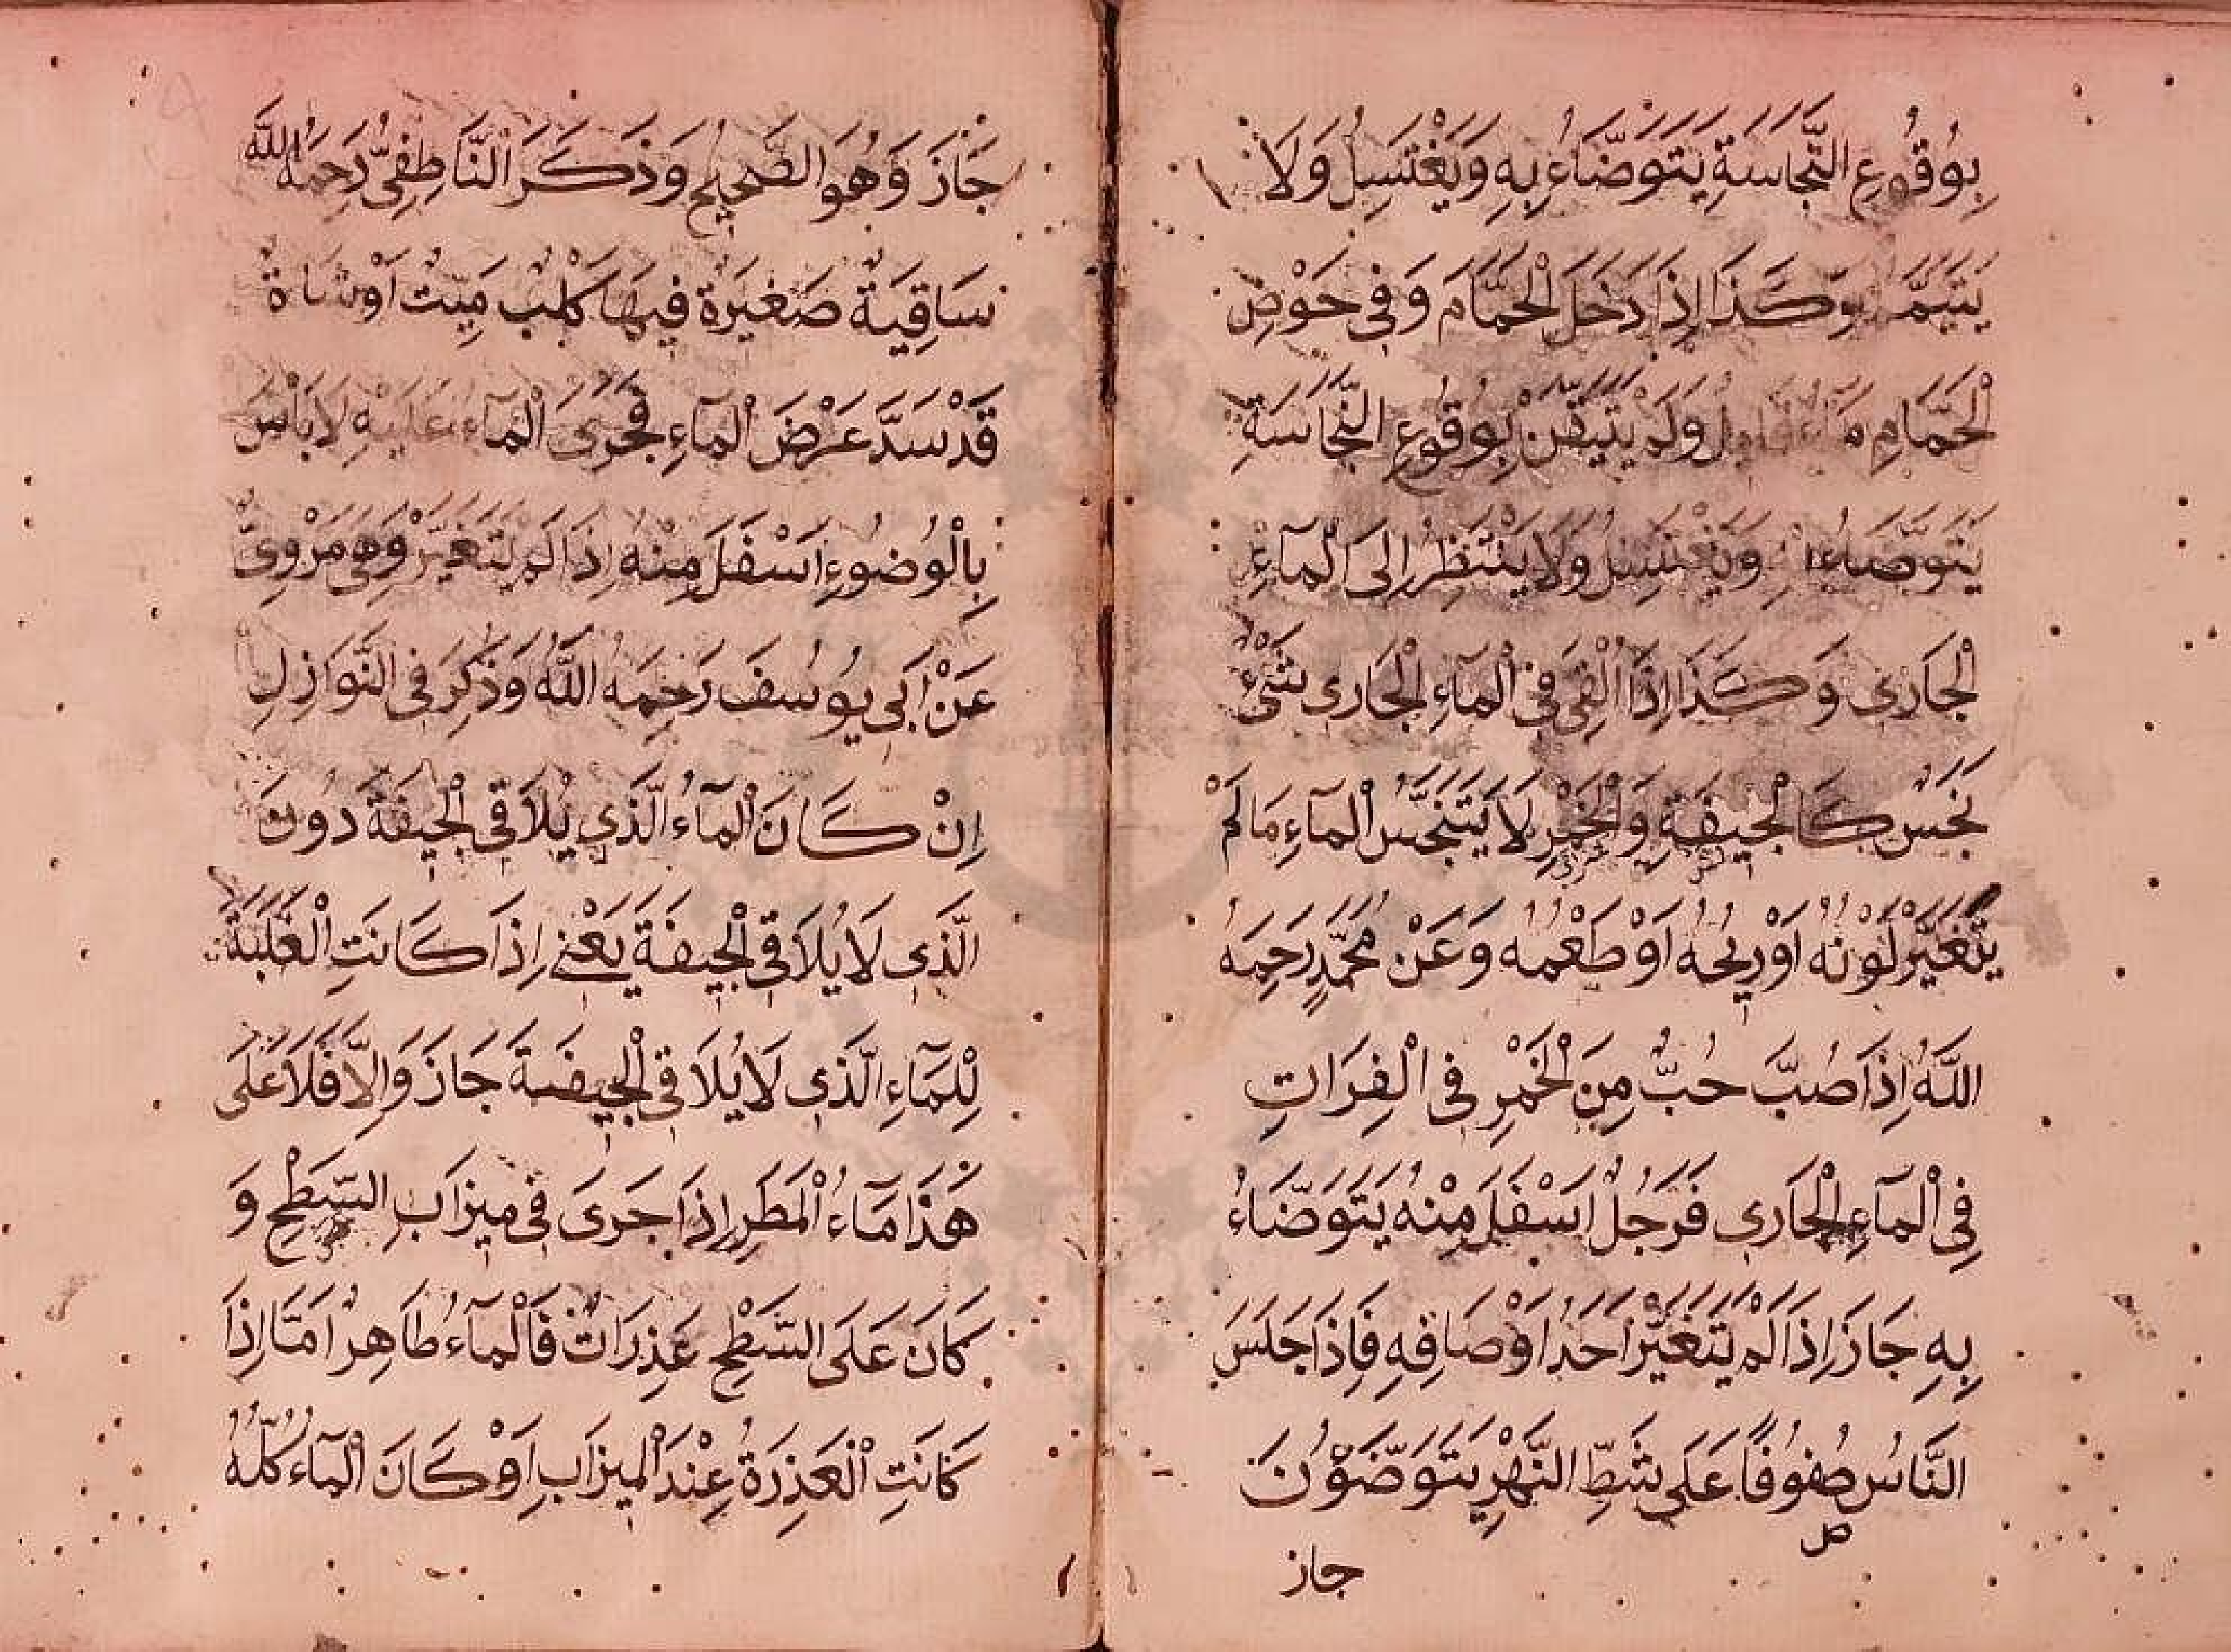 بِوُقُوعِ النَّجَاسَةِ يَتَوَضَّاءُ بِهِ وَيَغْتَسِلُ وَلَا
يَتَيَمَّمُ وَكَذَا اِذَا دَخَلَ الْحَمَّامَ وَفِي حَوْضِ
الْحَمَّامِ مَاءٌ قَلِيلٌ وَلَمْ يَتَيَقَّنْ بِوُقُوعِ النَّجَاسَةِ
يَتَوَضَّاءُ وَيَغْتَسِلُ وَلَا يَنْتَظِرُ اِلَى الْمَآءِ
الْجَارِي وَكَذَا اِذَا اُلْقِيَ فِي الْمَآءِ الْجَارِي شَيْءٌ
نَجَسٌ كَالْجِيفَةِ وَالْخَمْرِ لَا يَتَنَجَّسُ الْمَآءِ مَالَمْ
يَتَغَيَّرْ لَوْنُهُ اَوْ رِيحُهُ اَوْ طَعْمُه وَعَنْ مُحَمَّدٍ رَحِمَهُ
اللّٰهُ اِذَا صُبَّ حُبٌّ مِنَ الْخَمْرِ فِي الْفِرَاتِ
فِي الْمَآءِ الْجَارِي فَرَجُلٌ اَسْفَلَ مِنْهُ يَتَوَضَّاءُ
بِهِ جَازَ اِذَا لَمْ يَتَغَيَّرْ اَحَدُ اَوْصَافِهِ فَاِذَا جَلَسَ
النَّاسُ صُفُوفًا عَلَى شَطِّ النَّهْرِ يَتَوَضَّؤُنَ
ص
جاز
جَازَ وَهُوَ الصَّحِيحُ وَذَكَرَ النَّاطِفِىُّ رَحِمَهُ اللّٰهُ
سَاقِيَةٌ صَغِيَرةٌ فِيهَا كَلْبٌ مَيِتٌ اَوْ شَاةٌ
قَدْ سَدَّ عَرْضَ الْمَآءِ فَجَرَىَ الْمَآءُ عَلَيْهِ لَا بَاْسَ
بِالْوُضُوءِ اَسْفَلَ مِنْهُ اِذَا لَمْ يَتَغَيَّرْ وَهِيَ مَرْوِيٌّ
عَنْ اَبَي يُوُسُفَ رَحِمَهُ اللّٰهُ وَذُكِرَ فِي النَّوَازِلِ
اِنْ كَانَ الْمَآءُ الَّذِي يُلَاقِي الْجِيفَةَ دُونَ
الَّذِي لَا يُلَاقِي الْجِيفَةَ يَعْنِي اِذَا كَانَتِ الْغَلَبَةُ
لِلْمَآءِ الَّذِي لَا يُلَاقِي الْجِيفَةَ جَازَ وَاِلَّا فَلَا عَلَى
هَذَا مَآءُ الْمَطَرِ اِذَا جَرَىَ فِي مِيزَابِ السَّطْحِ وَ
كَانَ عَلَى السَّطْحِ عَذِرَاتٌ فَالْمَآءُ طَاهِرٌ اَمَّا اِذَا
كَانَتِ الْعَذِرَةُ عِنْدَ الْمِيزَابِ اَوْ كَانَ الْمَآءُ كُلُّهُ